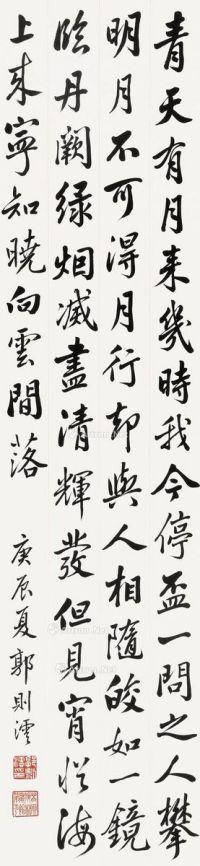 青天有月來幾時我今停盃一問之人攀
明月不可得月行却與人相隨皎如一鏡
臨丹闕緑烟滅盡清輝發但見宵從海
上來寧知曉向雲間落
庚辰夏郭則澐